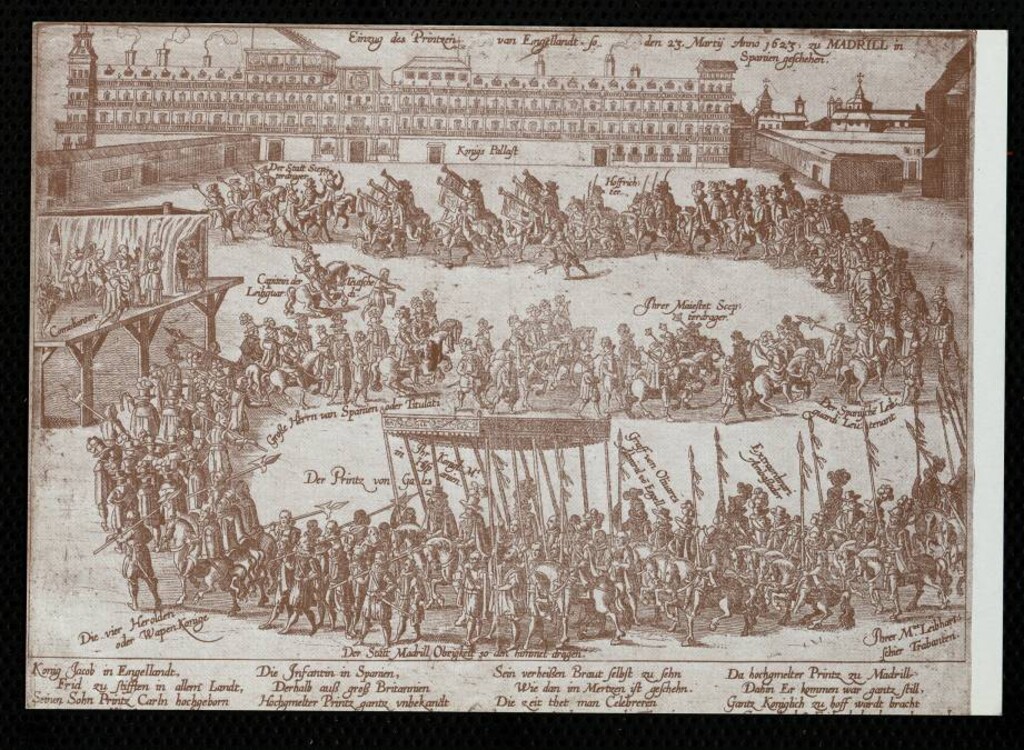 Einzug des Printzen van Engellandt so den 23. Martij Anno 1623. zu MADRILL in
Spanien geschehen.
Konigs Pallast
Der Statt Scep
trager.
Hoffrich
ter.
Capitein der
Leibguar
Teutsche
Ihrer Maiestet Scep
terdrager.
Comedianten
Große Herrn van Spanien oder Titulati
Der Spanische Leib
guardi Leutenant.
Der Printz von Galles
Kon: M:
in Spanien.
Graff van Olivares
Die vier Herolden
oder Wapen Konige
Ihrer Mtt Leibhart-
schier Trabanten.
Der Statt Madrill Obrigkeit so den himmel dragen.
Konig Jacob in Engellandt,
Frid zu stifften in allem Landt,
Seinen Sohn Printz Carln hochgeborn
Die Infantin in Spanien,
Derhalb auß groß Britannien
Hochgmelter Printz gantz vnbekandt
Sein verheißen Braut selbst zu sehn
Wie dan im Mertzen ist geschehn.
Die zeit thet man Celebreren
Da hochgmelter Printz zu Madrill
Dahin Er kommen war gantz still,
Gantz Koniglich zu hoff wardt bracht